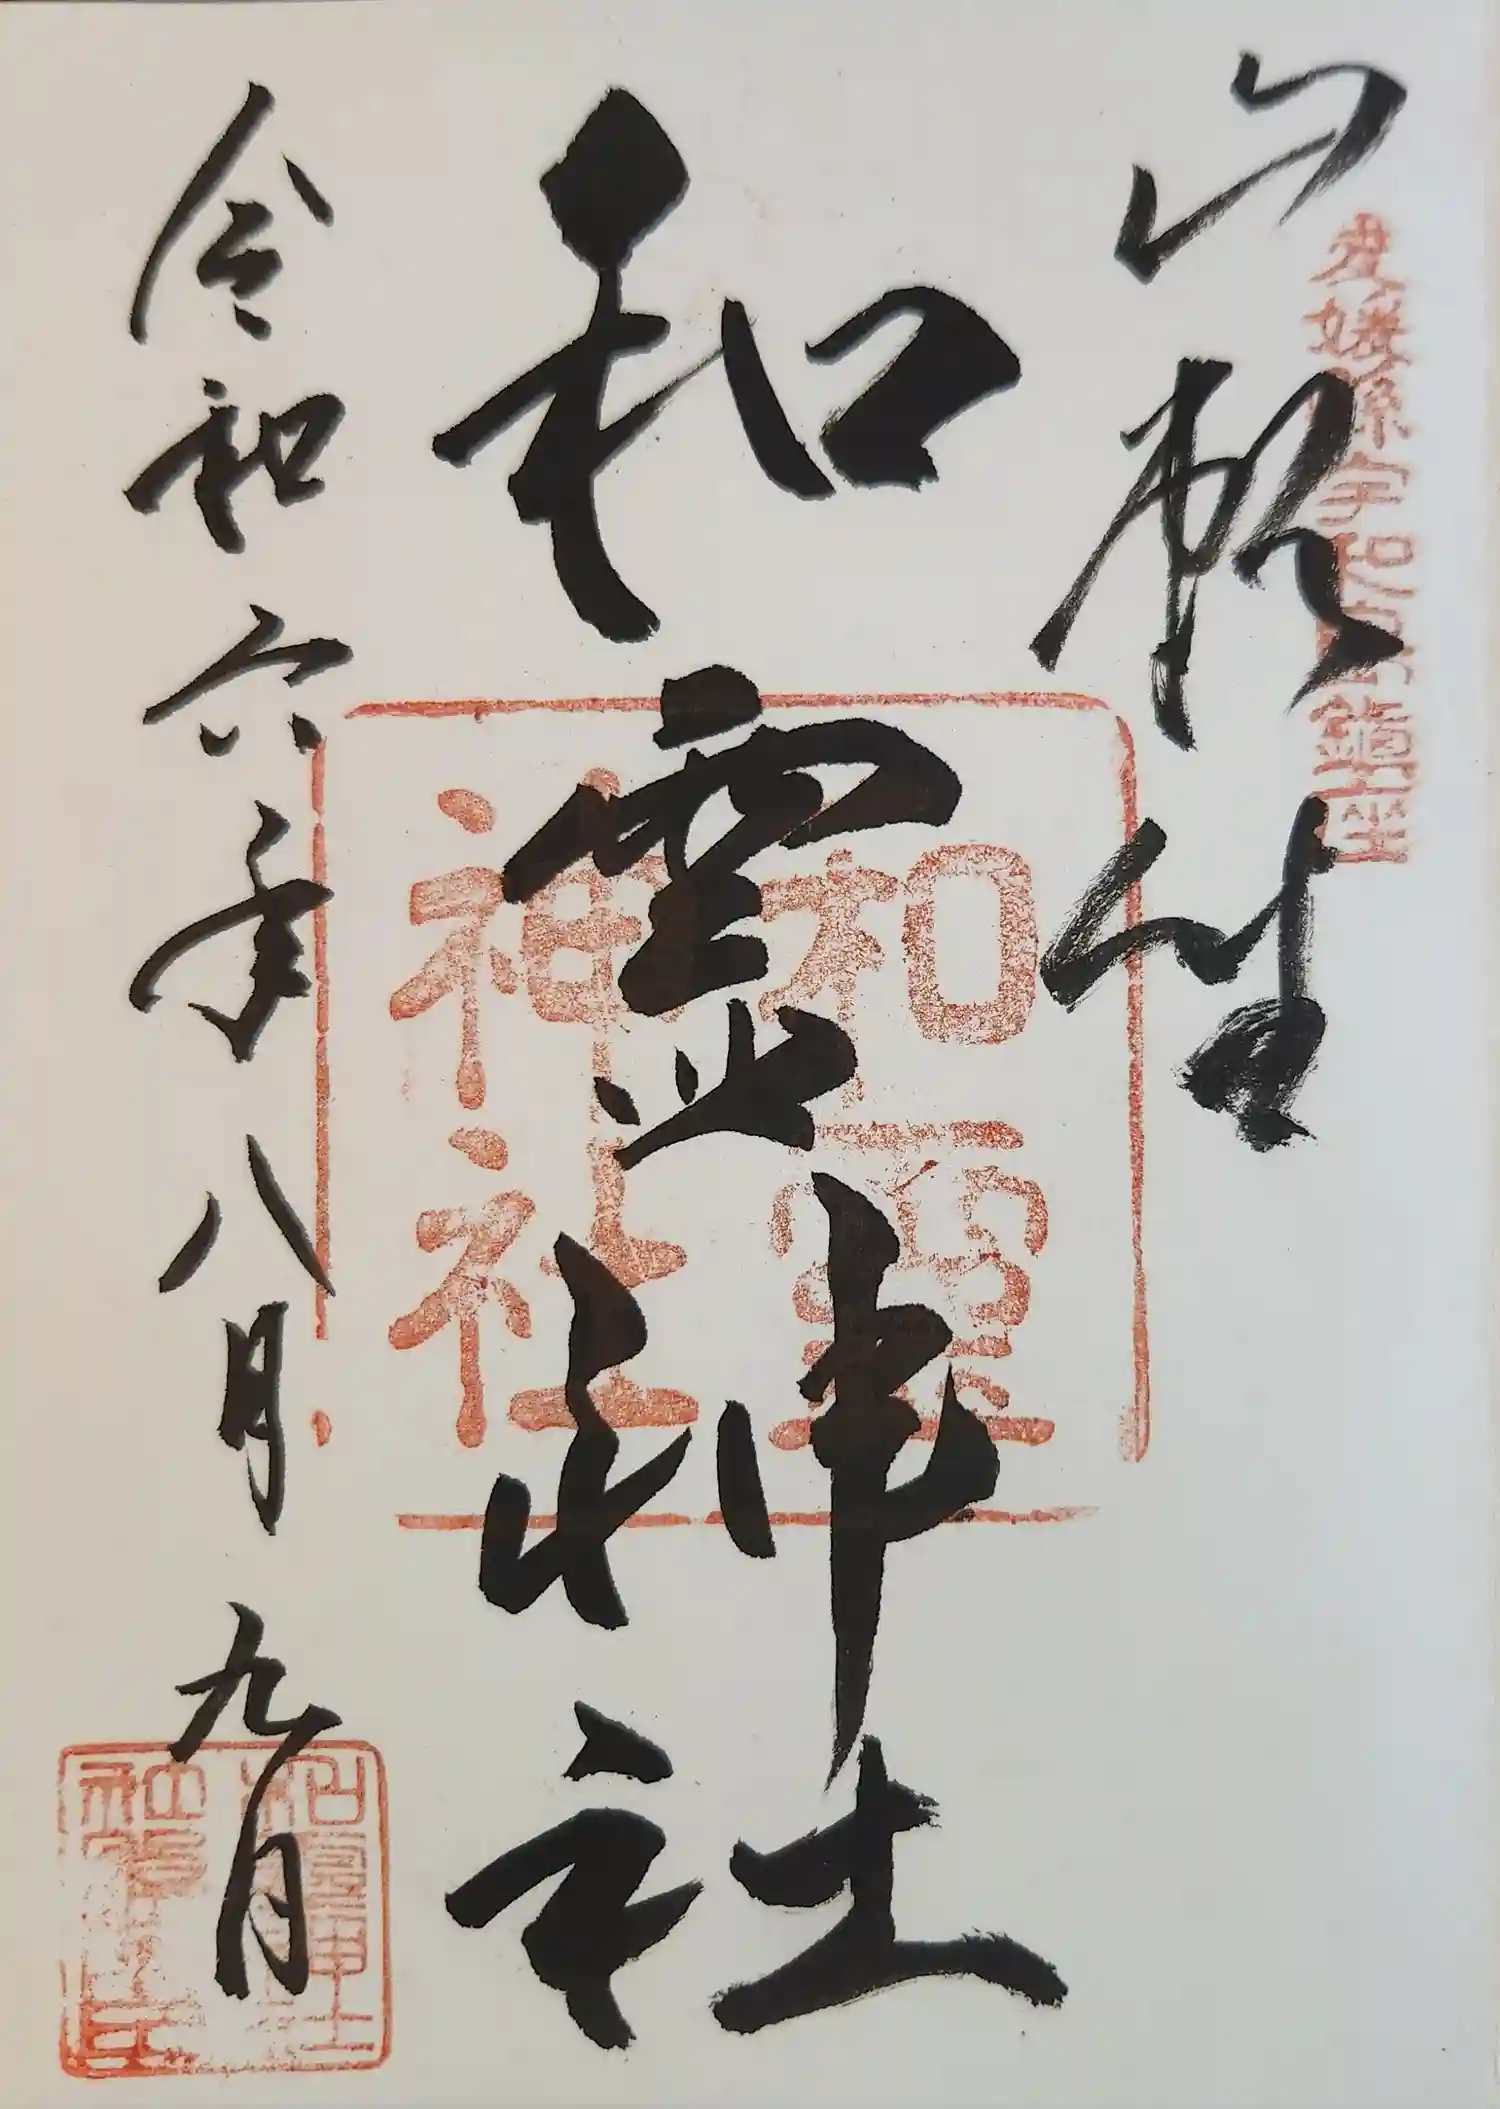 愛媛県宇和島鎮座
和霊神社
和霊神社
令和六年八月九日